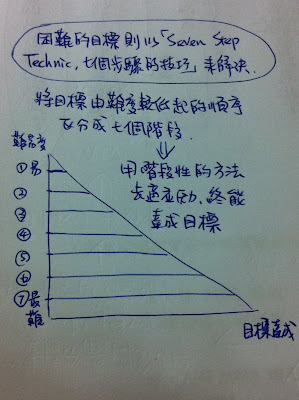 困難的目標則以「Seven Step
Technic, 七個步驟的技巧」來解決.
將目標由難度較低起的順序
區分成七個階段.
用階段性的方法
去適應動、終能
達成目標
難易度
①易
②
③
④
⑤
⑥
⑦最
難
目標達成